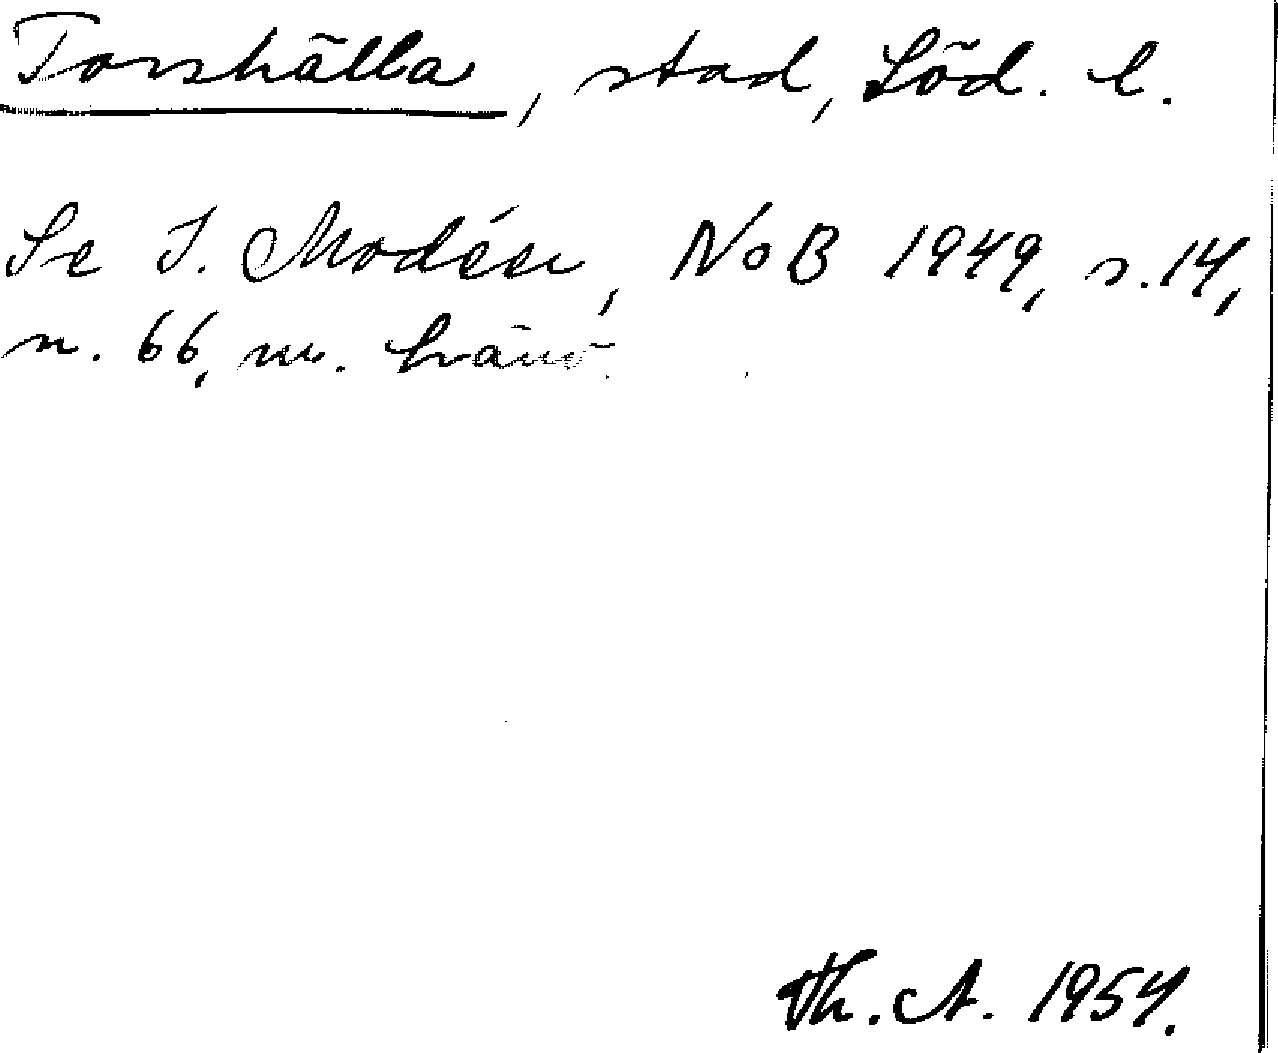 Torshälla, stad, Söd. l.
Se I. Modéer, NoB 1949, s. 14,
n. 66, m. hänv.
Th. A. 1954.